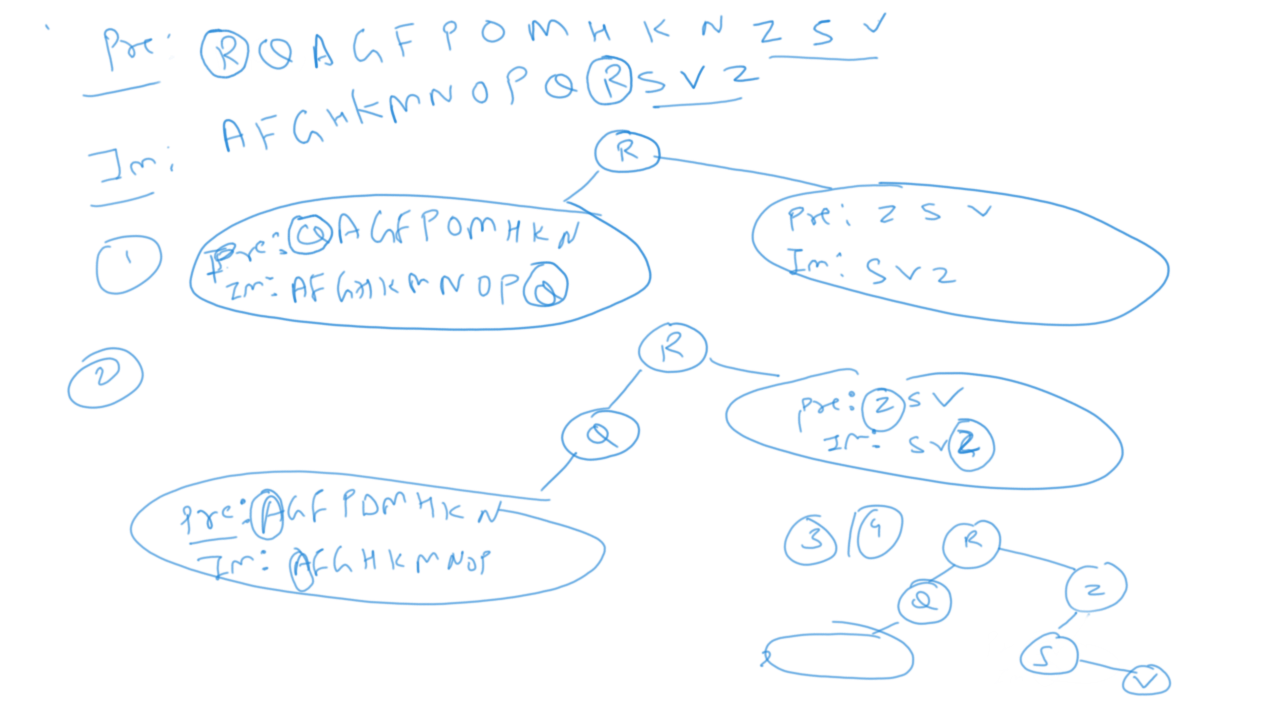 Pre: R Q A G F P O M H K N Z S V
In: A F G H K M N O P Q R S V Z
R
1
Pre: Q A G F P O M H K N
In: A F G H K M N O P Q
Pre: Z S V
In: S V Z
2
R
Q
Pre: Z S V
In: S V Z
Pre: A G F P O M H K N
In: A F G H K M N O P
3 / 4
R
Q
Z
S
V